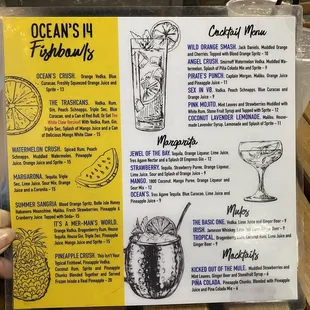 OCEAN'S 14
Fishbowls
OCEAN'S CRUSH. Orange Vodka, Blue
Curacao, Freshly Squeezed Orange Juice and
Sprite - 13
THE TRASHCANS. Vodka, Rum,
Gin, Peach Schnapps, Triple Sec, Blue
Curacao, and a can of Red Bull. Or Sub
White Claw Version! With Vodka, Rum, Gin,
Triple Sec, Splash of Mango and a Can of
Delicious Mango White Claw - 15
WATERMELON CRUSH. Spiced Rum, Peach
Schnapps, Muddled Watermelon, Pineapple
Juice, Orange Juice and Sprite - 15
MARGARONA. Tequila, Triple
Sec, Lime Juice, Sour Mix, Orange
Juice and a Corona - 15
SUMMER SANGRIA
IT'S A MER-MAN'S WORLD.
Orange Vodka, Dragonberry Rum, House
Tequila, House Gin, Triple Sec, Pineapple
Juice, Mango Juice and Sprite - 15
PINEAPPLE CRUSH. This isn't Your
Typical Fishbowl. Pineapple Vodka,
Coconut Rum, Sprite and Pineapple
Chunks Blended Together and Served
Frozen Inside a Real Pineapple - 20
Cocktail Menu
WILD ORANGE SMASH. Jack Daniels, Muddled Orange
and Cherries. Topped with Blood Orange Sprite - 10
ANGEL CRUSH. Smirnoff Watermelon Vodka, Muddled Wa-
termelon, Splash of Piña Colada Mix and Sprite - 9
PIRATE'S PUNCH. Captain Morgan, Malibu, Orange Juice
and Pineapple Juice - 9
SEX IN VB. Vodka, Peach Schnapps, Orange Juice and
Blue Curacao - 9
PINK MOJITO. Mint Leaves and Strawberries Muddled
With Rum, Stone Fruit Syrup and Topped with Sprite - 10
COCONUT LAVENDER LEMONADE. Malibu, House-
made Lavender Syrup, Lemonade and Splash of Sprite - 10
Margarita
JEWEL OF THE BAY. Tequila, Orange Liqueur, Lime Juice,
Tres Agave Nectar and a Splash Of Empress Gin - 12
STRAWBERRY. Tequila, Strawberry Puree, Orange Liqueur,
Lime Juice and Pineapple Juice - 9
MANGO. 1800 Coconut, Mango Puree, Orange Liqueur and
Sour Mix - 12
OCEAN'S. Tres Agave Tequila, Blue Curacao, Lime Juice and
Pineapple Juice - 9
Mules
THE BASIC ONE. Vodka, Lime Juice and Ginger Beer - 9
IRISH. Jameson Whiskey, Lime Juice and Ginger Beer - 9
TROPICAL.
and Ginger Beer - 9
Mocktails
KICKED OUT OF THE MULE. Muddled Strawberries and
Mint Leaves, Grapefruit and Ginger Beer - 6
PIÑA COLADA. Pineapple Chunks, Blended with Pineapple
Juice and Piña Colada Mix - 6